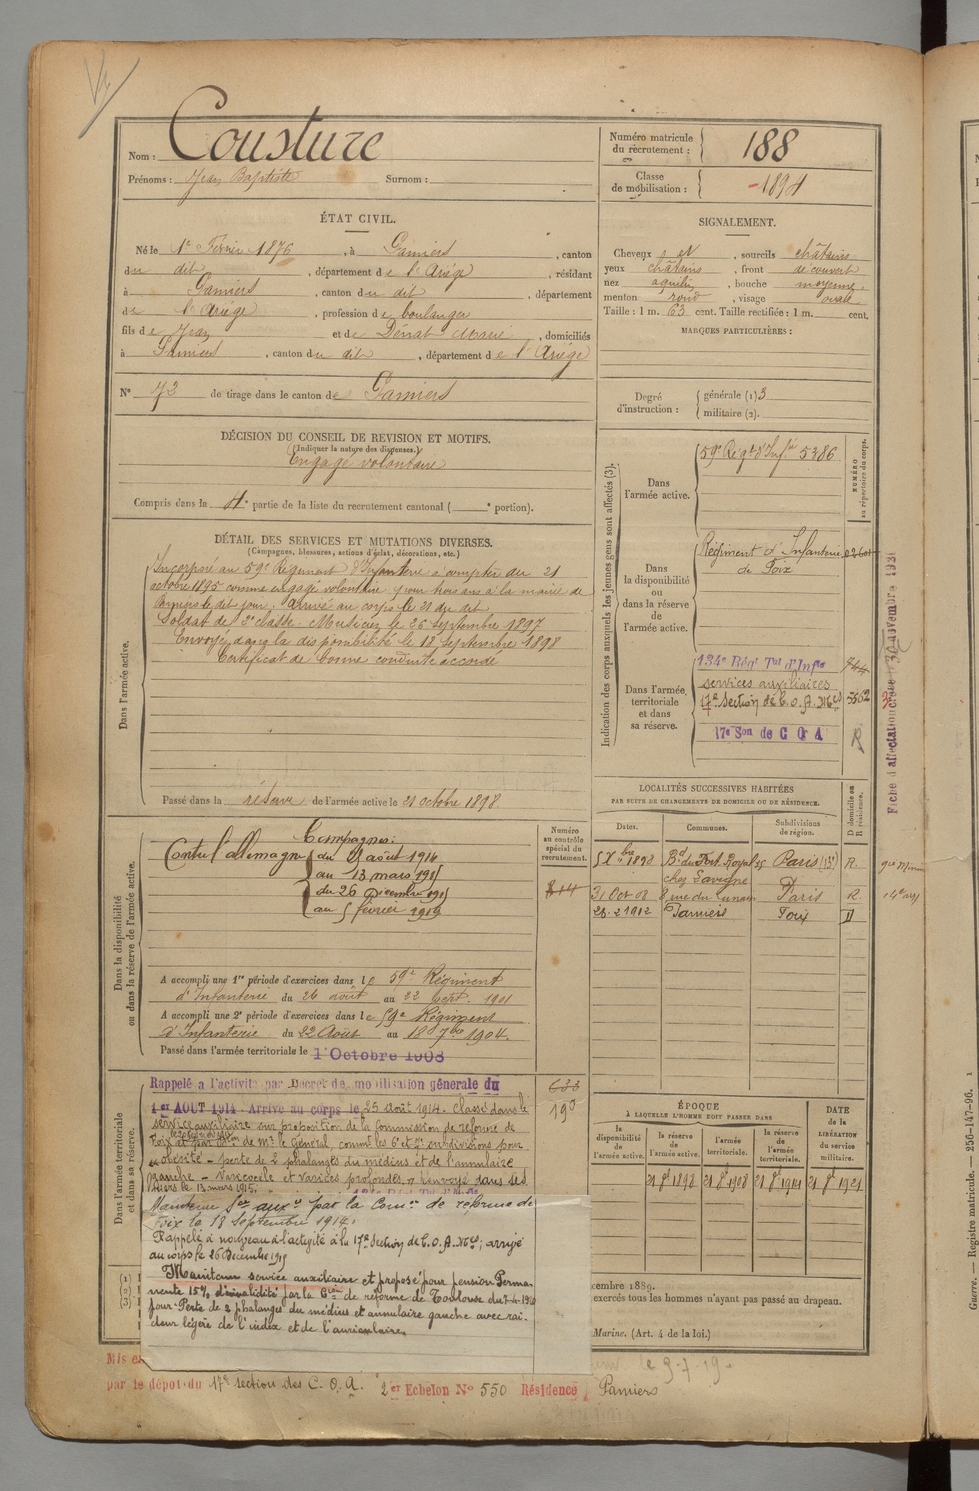 Nom : Cousture
Prénoms : Jean Baptiste Surnom :
Numéro matricule du recrutement : 188
Classe de mobilisation : 1894
ÉTAT CIVIL.
Né le 1er Février 1876, à Pamiers, canton
du dit, département de l'Ariège, résidant
à Pamiers, canton du dit, département
de l'Ariège, profession de boulanger
fils de Jean et de Dénat Marie, domiciliés
à Pamiers, canton du dit, département de l'Ariège
N° 73 de tirage dans le canton de Pamiers
SIGNALEMENT.
Cheveux et, sourcils châtains
yeux châtains, front découvert
nez aquilin, bouche moyenne
menton rond, visage ovale
Taille : 1 m. 63 cent. Taille rectifiée : 1 m. cent.
MARQUES PARTICULIÈRES :
Degré d'instruction : générale (1) 3
militaire (2).
DÉCISION DU CONSEIL DE REVISION ET MOTIFS.
(Indiquer la nature des dispenses.)
Engagé volontaire
Compris dans la 4e partie de la liste du recrutement cantonal ( e portion).
DÉTAIL DES SERVICES ET MUTATIONS DIVERSES.
(Campagnes, blessures, actions d'éclat, décorations, etc.)
Dans l'armée active.
Incorporé au 59e Régiment d'Infanterie à compter du 21
octobre 1895 comme engagé volontaire pour trois ans à la mairie de
Pamiers le dit jour. Arrivé au corps le 21 du dit.
Soldat de 2e classe. Musicien le 26 septembre 1897
Envoyé dans la disponibilité le 18 septembre 1898
Certificat de bonne conduite accordé
Passé dans la réserve de l'armée active le 21 octobre 1898
Indication des corps auxquels les jeunes gens sont affectés (3).
NUMÉRO au répertoire du corps.
Dans l'armée active.
59e Régt d'Infie 5386
Dans la disponibilité ou dans la réserve de l'armée active.
Régiment d'Infanterie
de Foix
Dans l'armée territoriale et dans sa réserve.
134e Régt Tal d'Infie
services auxiliaires
17e Section de C. O. A. Mes
17e Son de C O A
R
Fiche d'affectation 30 novembre 193
LOCALITÉS SUCCESSIVES HABITÉES
PAR SUITE DE CHANGEMENTS DE DOMICILE OU DE RÉSIDENCE.
Dates. Communes. Subdivisions de région. D domicile ou R résidence.
5 Xbre 1898 Bd du Port Royal 35 Paris (13e) R.
chez Lavigne
31 Oct 08 8 rue du Paris R.
28.2 1912 Pamiers Foix D
Dans la disponibilité ou dans la réserve de l'armée active.
Numéro au contrôle spécial du recrutement.
Campagnes :
Contre l'allemagne du août 1914
au 13 mars 1915
du 26 Décembre 1915
au 5 février 1919
844
A accompli une 1re période d'exercices dans le 59e Régiment
d'Infanterie du 26 août au 22 Sept. 1901
A accompli une 2e période d'exercices dans le 59e Régiment
d'Infanterie du 22 Août au 18 7bre 1904.
Passé dans l'armée territoriale le 1er Octobre 1908
Dans l'armée territoriale et dans sa réserve.
Rappelé à l'activité par Décret de mobilisation générale du
1er AOUT 1914 Arrivé au corps le 25 août 1914. Classé dans le
service auxiliaire sur proposition de la Commission de réforme de
Foix et par de Mr le Général commt les 6e et 7e subdivisions pour
obésité - perte de 2 phalanges du médius et de l'annulaire
gauche - varicocèle et varices profondes. Renvoyé dans ses
foyers le 13 mars 1915.
633
190
Maintenu Sce auxre par la Comon de réforme de
Foix le 18 Septembre 1914.
Rappelé à nouveau à l'activité à la 17e Section de C. O. A. Mes, arrivé
au corps le 26 Décembre 1915
Maintenu service auxiliaire et proposé pour pension Perma-
nente 15% d'invalidité par la Con de réforme de Toulouse du
pour Perte de 2 phalanges du médius et annulaire gauche avec rai-
deur légère de l'index et de l'auriculaire.
ÉPOQUE
À LAQUELLE L'HOMME DOIT PASSER DANS
DATE de la LIBÉRATION du service militaire.
la disponibilité de l'armée active. la réserve de l'armée active. l'armée territoriale. la réserve de l'armée territoriale.
21 8e 1898 21 8e 1908 21 8e 1914 21 8e 1921
cembre 1889.
exercés tous les hommes n'ayant pas passé au drapeau.
Marine. (Art. 4 de la loi.)
Mis en
par le dépôt du 17e section des C. O. A. 2er Echelon N° 550 Résidence Pamiers
Guerre. — Registre matricule. — 256-147-96.